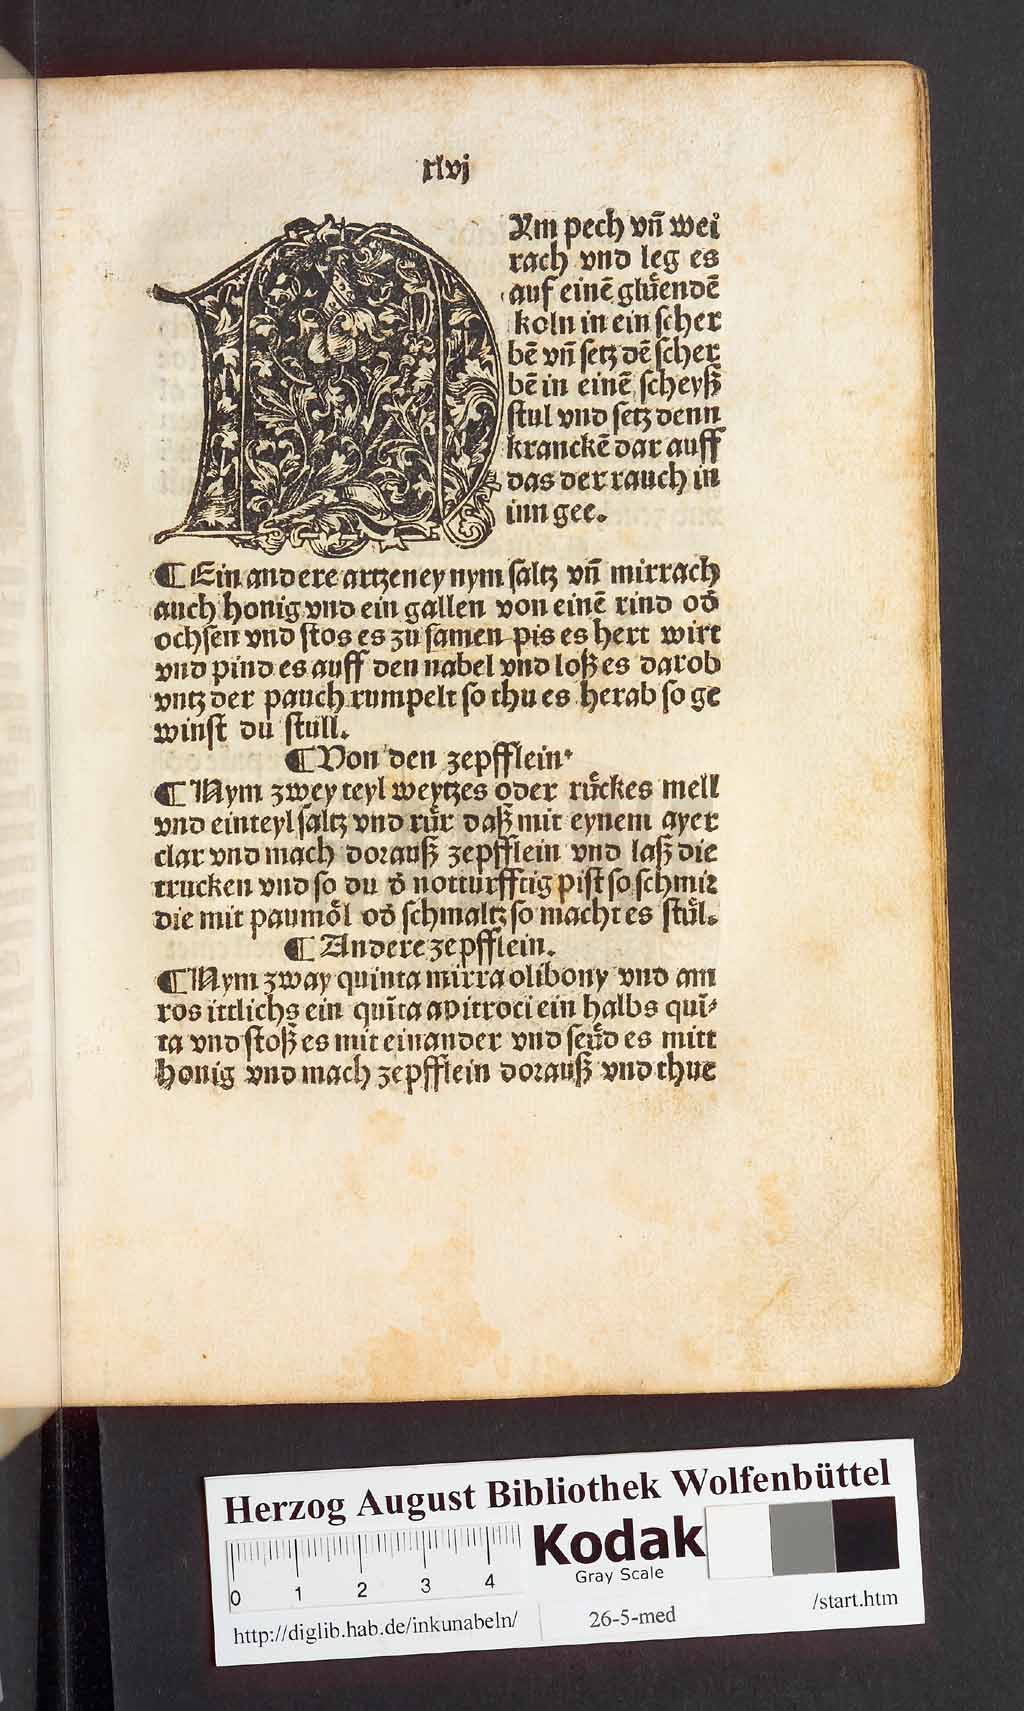 xlvj
NYm pech vn̄ wei
rach vnd leg es
auf einē glůendē
koln in ein scher
bē vn̄ setz dē scher
bē in einē scheyß
stul vnd setz denn
kranckē dar auff
das der rauch in
inn gee.
¶ Ein andere artzeney nym saltz vn̄ mirrach
auch honig vnd ein gallen von einē rind od̛
ochsen vnd stos es zu samen pis es hert wirt
vnd pind es auff den nabel vnd loß es darob
vntz der pauch rumpelt so thu es herab so ge
winst du stull.
¶ Von den zepfflein.
¶ Nym zwey teyl weytzes oder růckes mell
vnd einteyl saltz vnd růr daß mit eynem ayer
clar vnd mach dorauß zepfflein vnd laß die
trucken vnd so du d̛ notturfftig pist so schmir
die mit paumȯl od̛ schmaltz so macht es stůl.
¶ Andere zepfflein.
¶ Nym zway quinta mirra olibony vnd am
ros ittlichs ein quīta apitroci ein halbs quī⸗
ta vnd stoß es mit einander vnd seůd es mitt
honig vnd mach zepfflein dorauß vnd thue
Herzog August Bibliothek Wolfenbüttel
0 1 2 3 4
Kodak
Gray Scale
http://diglib.hab.de/inkunabeln/ 26-5-med /start.htm